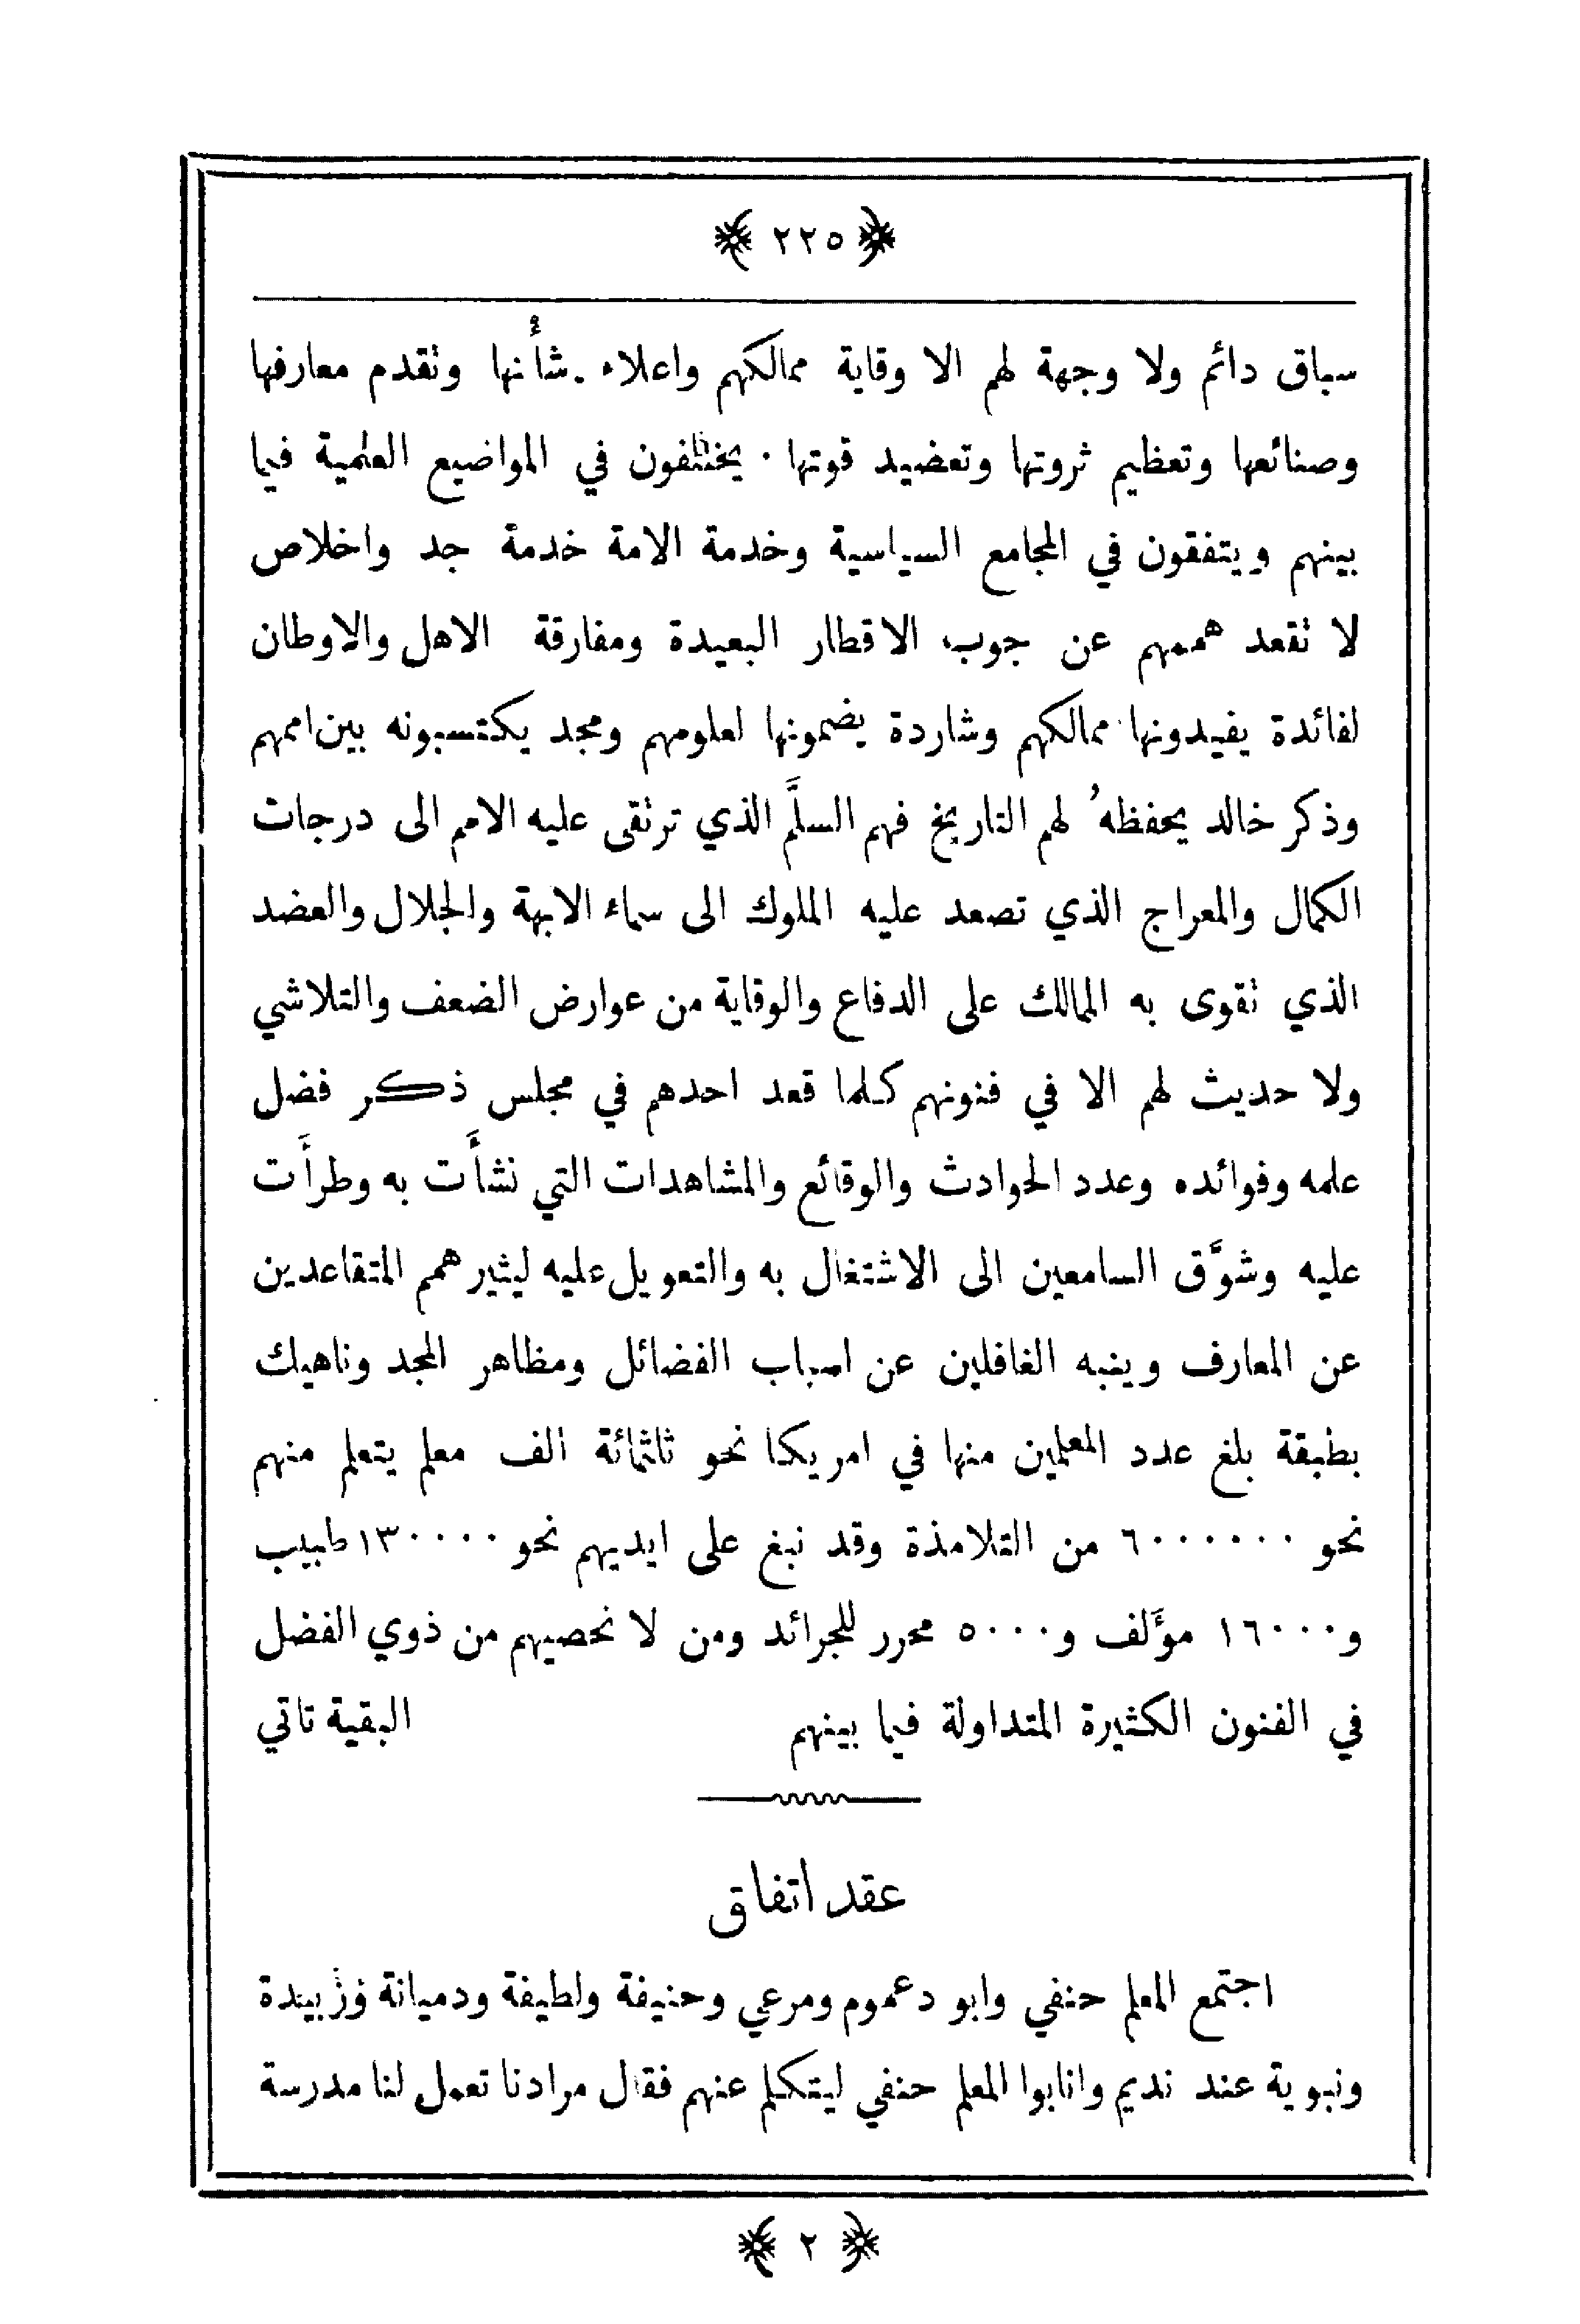 ﴿ ٢٢٥ ﴾
سباق دائم ولا وجهة لهم الا وقاية ممالكهم واعلاء شأنها وتقدم معارفها
وصنائعها وتعظيم ثروتها وتعضيد قوتها · يختلفون في المواضيع العلمية فيما
بينهم ويتفقون في المجامع السياسية وخدمة الامة خدمة جد واخلاص
لا تقعد هممهم عن جوب الاقطار البعيدة ومفارقة الاهل والاوطان
لفائدة يفيدونها ممالكهم وشاردة يضمونها لعلومهم ومجد يكتسبونه بين اممهم
وذكر خالد يحفظهُ لهم التاريخ فهم السلَّم الذي ترتقى عليه الامم الى درجات
الكمال والمعراج الذي تصعد عليه الملوك الى سماء الابهة والجلال والعضد
الذي تقوى به الممالك على الدفاع والوقاية من عوارض الضعف والتلاشي
ولا حديث لهم الا في فنونهم كلما قعد احدهم في مجلس ذكر فضل
علمه وفوائده وعدد الحوادث والوقائع والمشاهدات التي نشأَت به وطرأَت
عليه وشوَّق السامعين الى الاشتغال به والتعويل عليه ليثير همم المتقاعدين
عن المعارف وينبه الغافلين عن اسباب الفضائل ومظاهر المجد وناهيك
بطبقة بلغ عدد المعلمين منها في امريكا نحو ثلثمائة الف معلم يتعلم منهم
نحو ٦٠٠٠٠٠٠ من التلامذة وقد نبغ على ايديهم نحو ١٣٠٠٠٠ طبيب
و١٦٠٠٠ مؤَلف و٥٠٠٠ محرر للجرائد ومن لا نحصيهم من ذوي الفضل
في الفنون الكثيرة المتداولة فيما بينهم البقية تاتي
عقد اتفاق
اجتمع المعلم حنفي وابو دعموم ومرعي وحنيفة ولطيفة ودميانة وزبيدة
ونبوية عند نديم وانابوا المعلم حنفي ليتكلم عنهم فقال مرادنا تعمل لنا مدرسة
﴿ ٢ ﴾